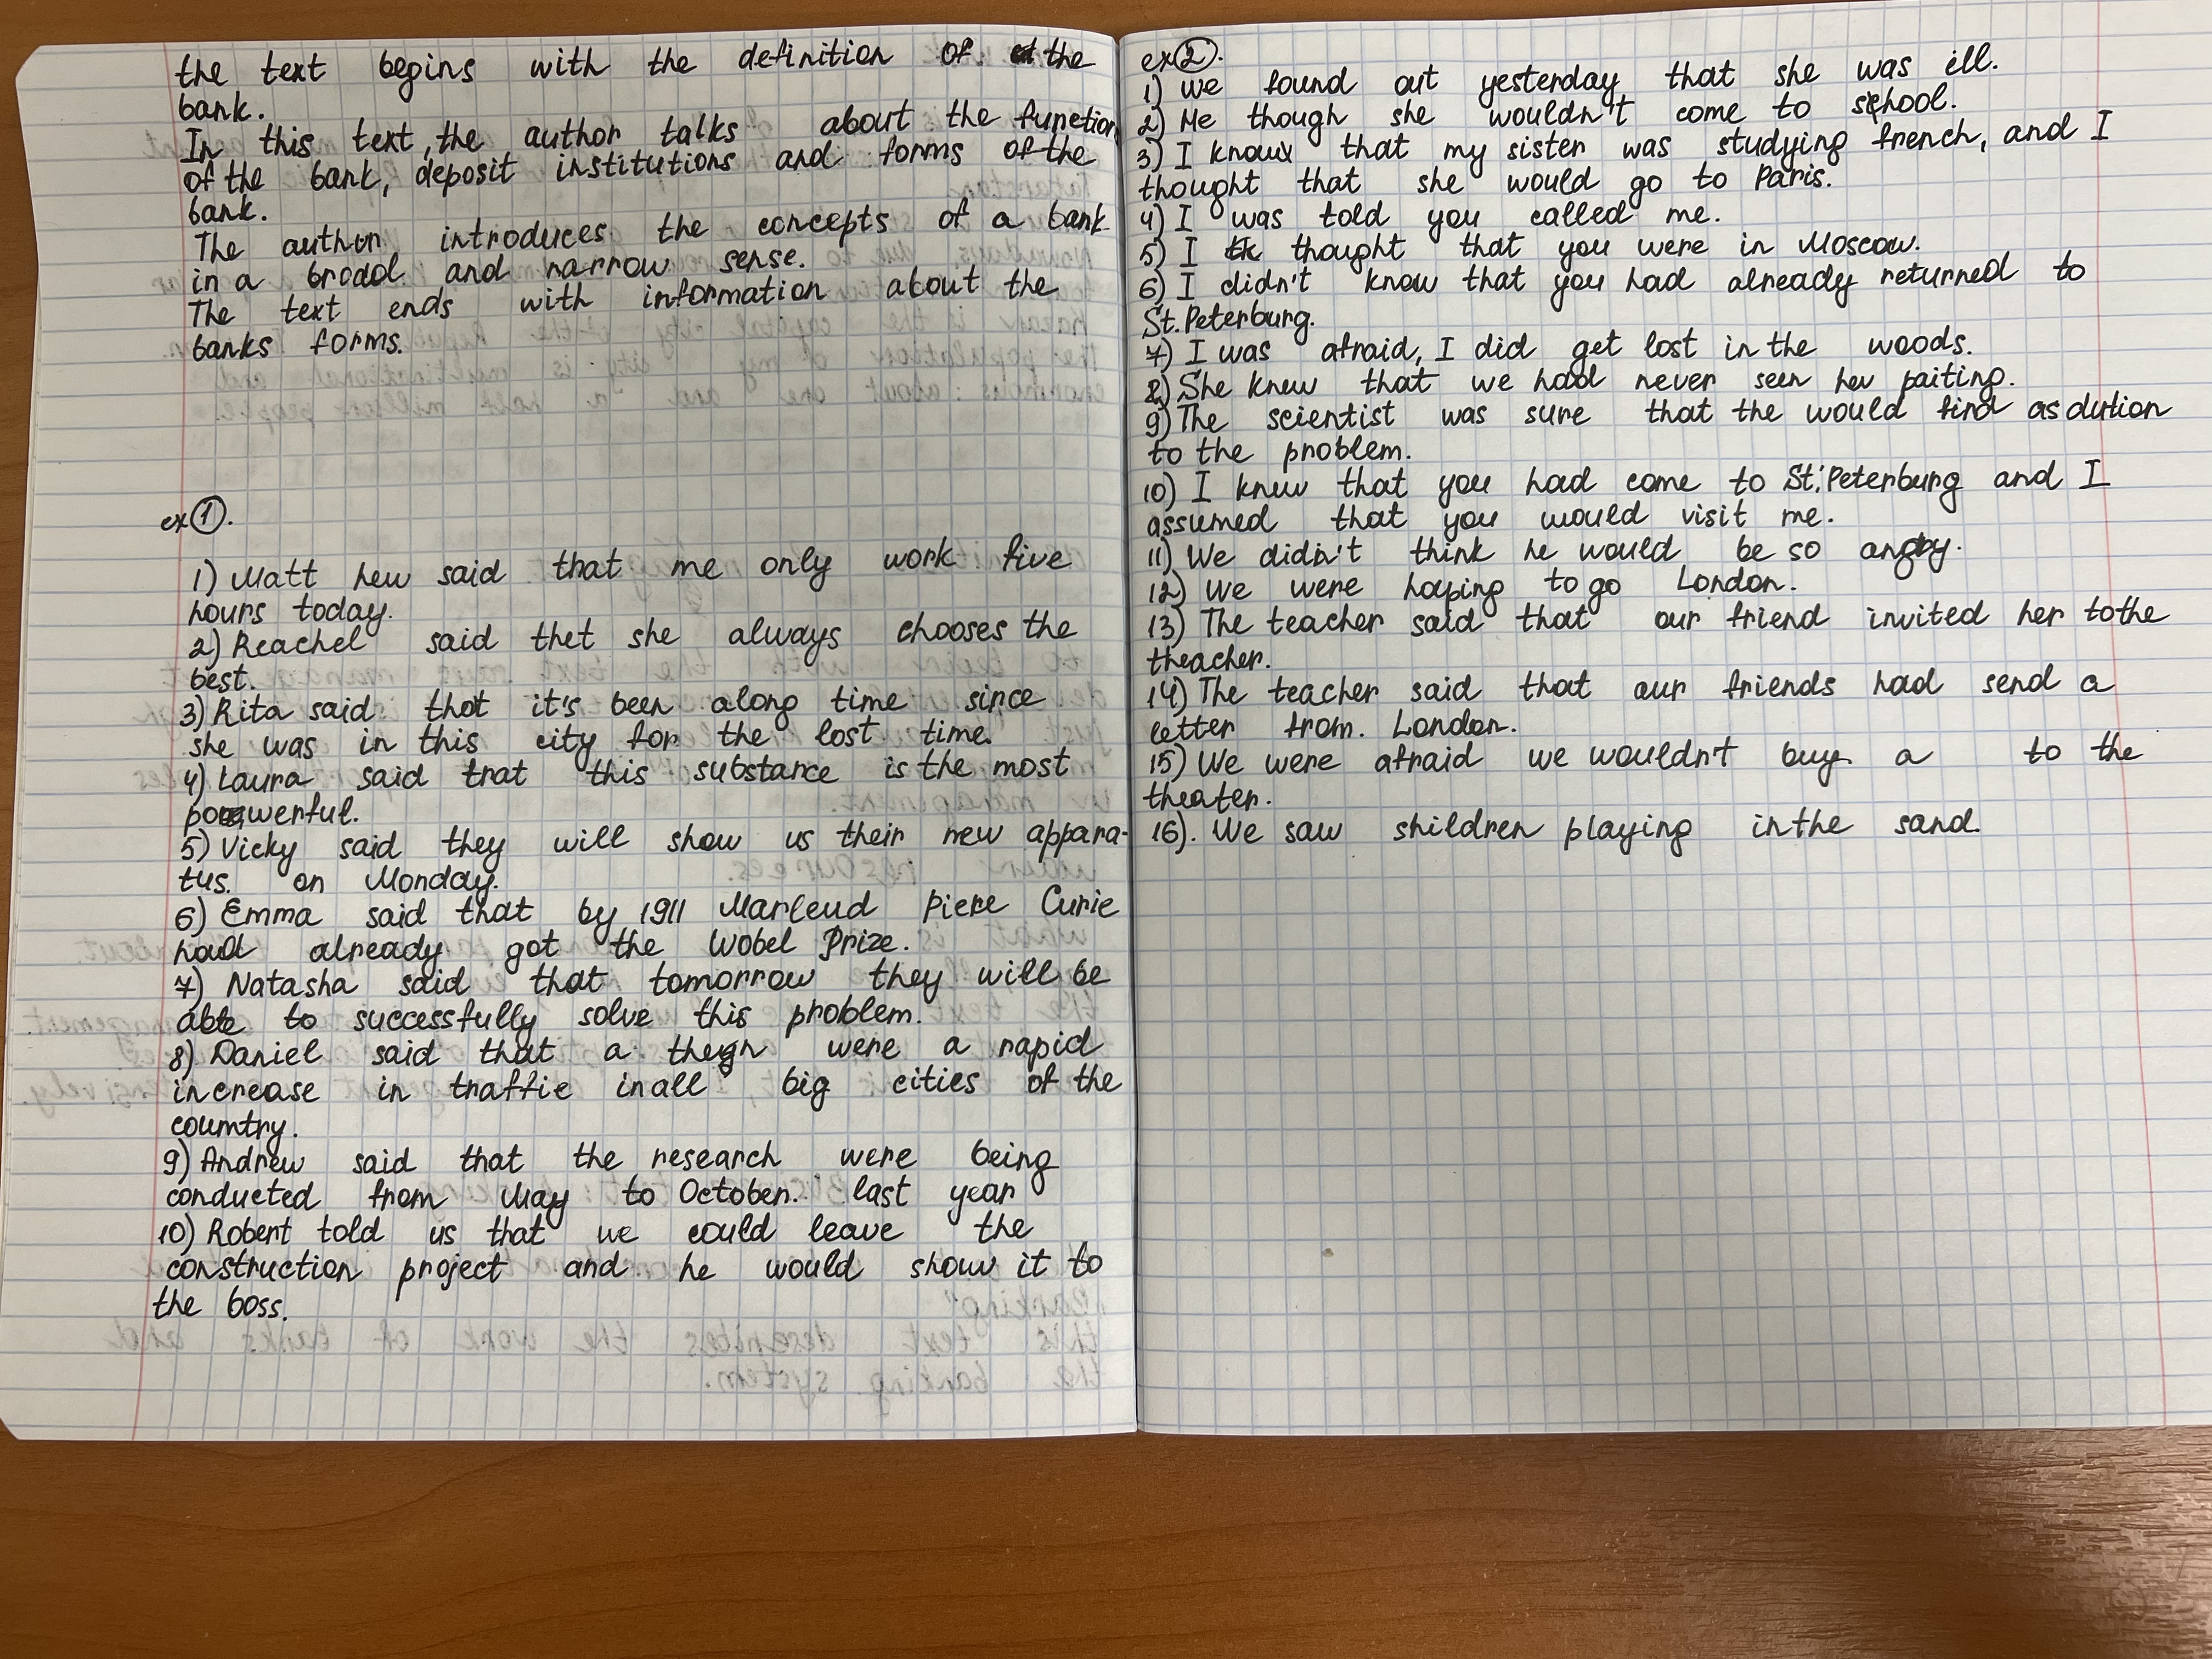 the text begins with the definition of the
bank.
In this text, the author talks about the function
of the bank, deposit institutions and forms of the
bank.
The author introduces the concepts of a bank
in a brodd and narrow sense.
The text ends with information about the
banks forms.
ex 1.
1) Matt hew said that me only work five
hours today.
2) Reachel said thet she always chooses the
best.
3) Rita said that it's been along time since
she was in this city for the lost time.
4) Laura said trat this substance is the most
powerful.
5) Vicky said they will show us their new appara-
tus. on Monday.
6) Emma said that by 1911 Marleud Piere Curie
had already got the Wobel Prize.
7) Natasha said that tomorrow they will be
able to successfully solve this problem.
8) Daniel said that a were a rapid
increase in traffic in all big cities of the
country.
9) Andrew said that the research were being
conducted from May to October. last year
10) Robert told us that we could leave the
construction project and he would show it to
the boss.
ex 2.
1) We found out yesterday that she was ill.
2) Me though she wouldn't come to school.
3) I know that my sister was studying french, and I
thought that she would go to Paris.
4) I was told you called me.
5) I thought that you were in Moscow.
6) I didn't know that you had already returned to
St. Peterburg.
7) I was afraid, I did get lost in the woods.
8) She knew that we had never seen her paiting.
9) The scientist was sure that the would find asdution
to the problem.
10) I knew that you had come to St. Peterburg and I
assumed that you would visit me.
11) We didn't think he would be so angry.
12) We were hoping to go London.
13) The teacher said that our friend invited her to the
theacher.
14) The teacher said that our friends had send a
letter from. London.
15) We were afraid we wouldn't buy a to the
theater.
16). We saw shildren playing in the sand.